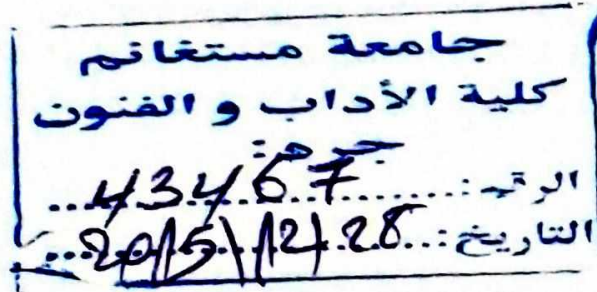 جامعة مستغانم
كلية الأداب و الفنون
جرد:
الرقم:....43467....
التاريخ:....2015\12\28....